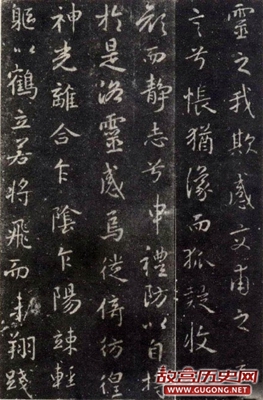 靈之我欺感交甫之
言兮悵猶豫而狐疑收
顏而静志兮申禮防以自持
於是洛靈感焉徙倚彷徨
神光離合乍陰乍陽竦輕
軀以鶴立若將飛而未翔踐
故宫历史网
WWW.GUGONG.NET